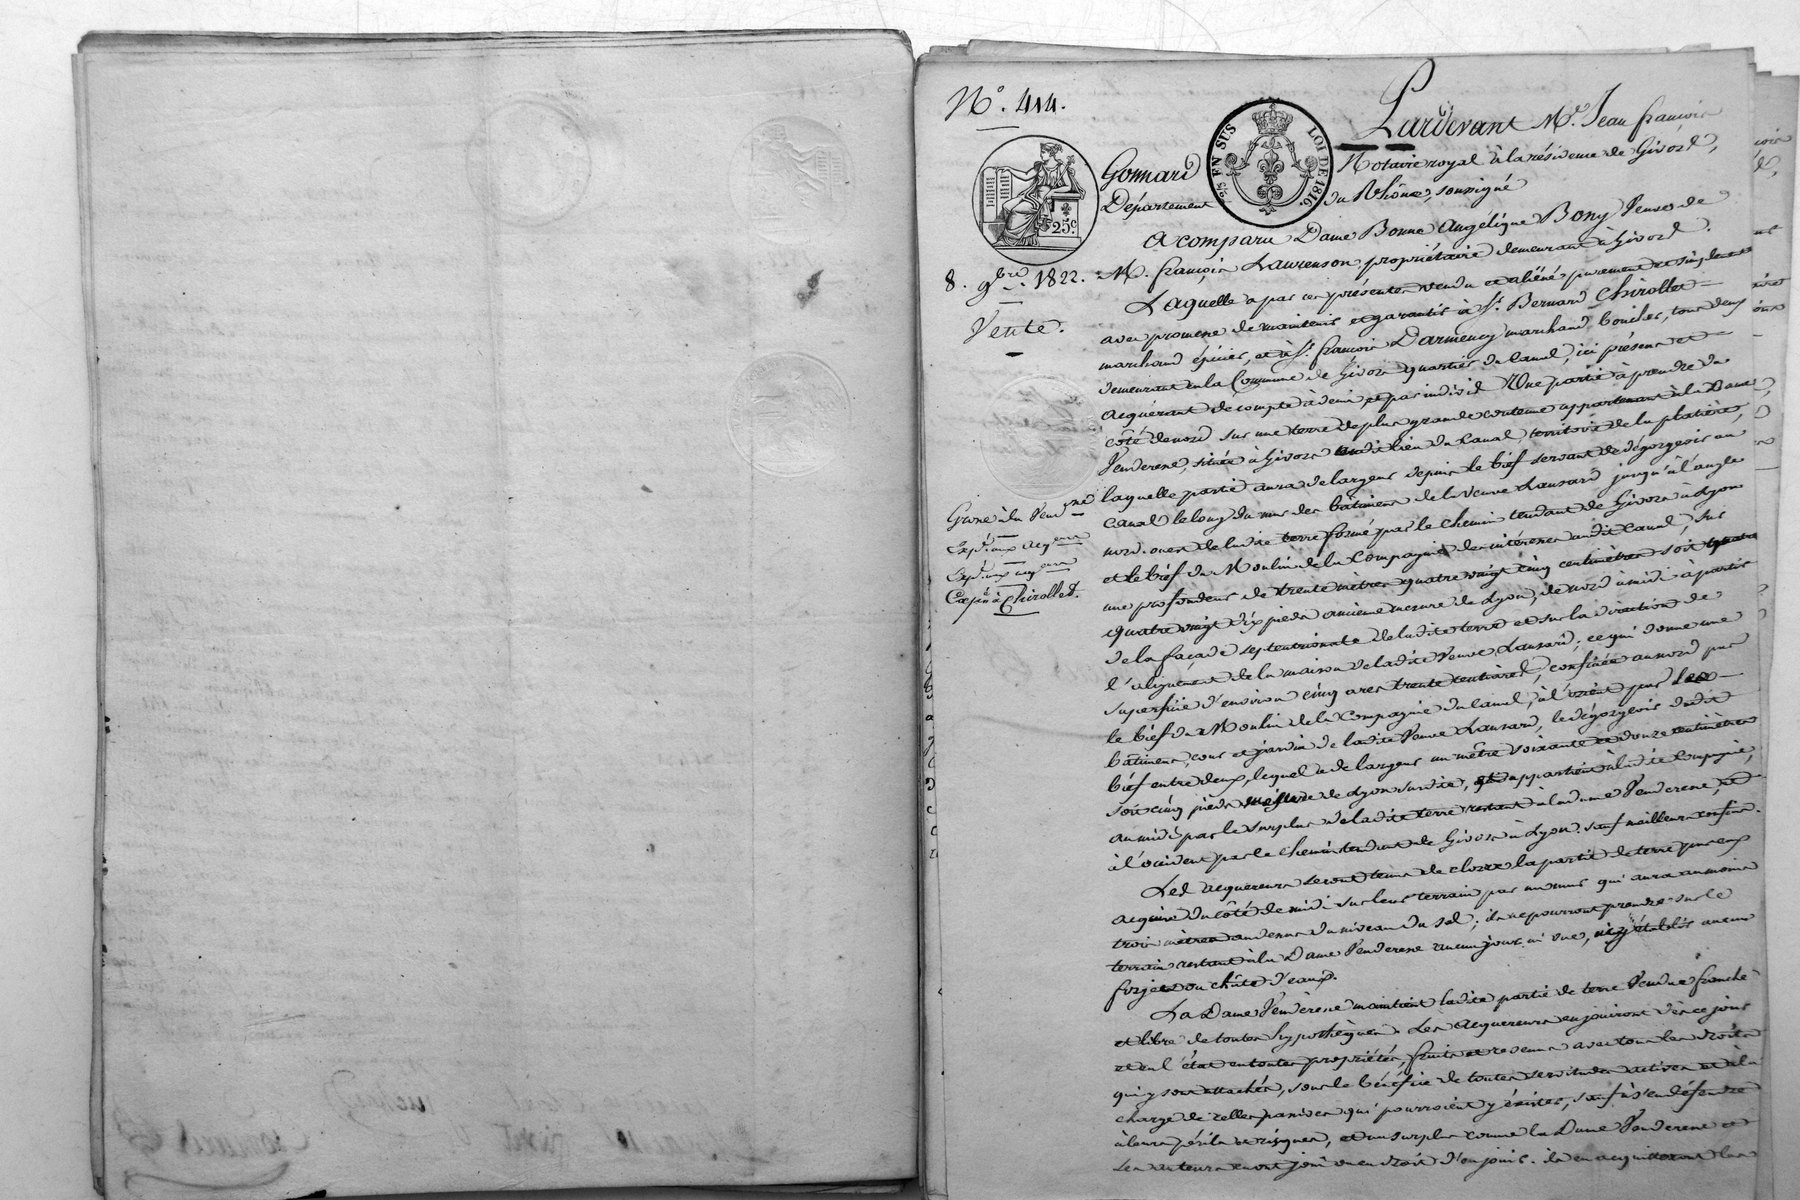 N.º 414.
Pardevant M.e Jean françois
Gonnard Notaire royal à la résidence de Givors,
Département du Rhône, soussigné
25 EN SUS LOI DE 1816.
25c.
A comparu Dame Bonne Angélique Bony Veuve de
8. 9bre 1822.
M. françois Laurenson, propriétaire demeurant à Givors.
Vente.
Laquelle a par ces présentes vendu et aliéné purement et simplement
avec promesse de maintenir et garantir à Sr. Bernard Chirollet
marchand épicier, et à Sr. françois Darmency marchand boucher, tous deux
demeurant en la Commune de Givors quartier du Canal, ici présens et
acquérant de compte à demi et par indivis Une partie à prendre du
côté de nord sur une terre de plus grande contenue appartenant à la Dame
Venderesse, située à Givors audit lieu du Canal, territoire de la platière,
laquelle partie aura de largeur depuis le bief servant de dégorgeois au
Grosse à la Vend.ne
Canal le long du mur des bâtimens de la Veuve Lausard jusqu'à l'angle
Expd. aux acq
nord-ouest de ladite terre formé par le chemin tendant de Givors à Lyon
Expd. aux acq
et le bief du Moulin de la Compagnie des intéressés audit Canal, sur
Chirollet.
une profondeur de trente mètres quatre vingt cinq centimètres soit
quatre vingt dix pieds ancienne mesure de Lyon, de nord à midi à partir
de la façade septentrionale de ladite terre et sur la direction de
l'alignement de la maison de ladite Veuve Lausard; ce qui donne une
superficie d'environ cinq ares trente centiares, confinée au nord par
le bief du Moulin de la Compagnie du Canal, à l'orient par les
bâtimens, cour et jardin de ladite Veuve Lausard, le dégorgeois dudit
bief entre deux, lequel a de largeur un mètre soixante et douze centimètres
soit cinq pieds mesure de Lyon susdite, et appartient à ladite Compagnie,
au midi par le surplus de ladite terre restant à la dame Venderesse, et
à l'occident par le chemin tendant de Givors à Lyon. sauf meilleurs confins.
Les acquéreurs seront tenus de clorre la partie de terre par eux
acquise du côté de midi sur leur terrain par un mur qui aura au moins
trois mètres au dessus du niveau du sol; ils ne pourront prendre sur le
terrain restant à la Dame Venderesse aucun jour ni vue, ni y établir aucun
forjet ou chûte d'eaux.
La Dame Venderesse maintient ladite partie de terre Vendue franche
et libre de toutes hypothèques. Les Acquéreurs en jouiront dès ce jour
et en l'état en toutes propriétés, fruits et revenus avec tous les droits
qui y sont attachés, sous le bénéfice de toutes servitudes actives et à la
charge de celles passives qui pourroient y exister, sauf à s'en défendre
à leurs périls et risques, et au surplus comme la Dame Venderesse et
ses auteurs en ont joui ou eu droit d'en jouir. ils en acquitteront les